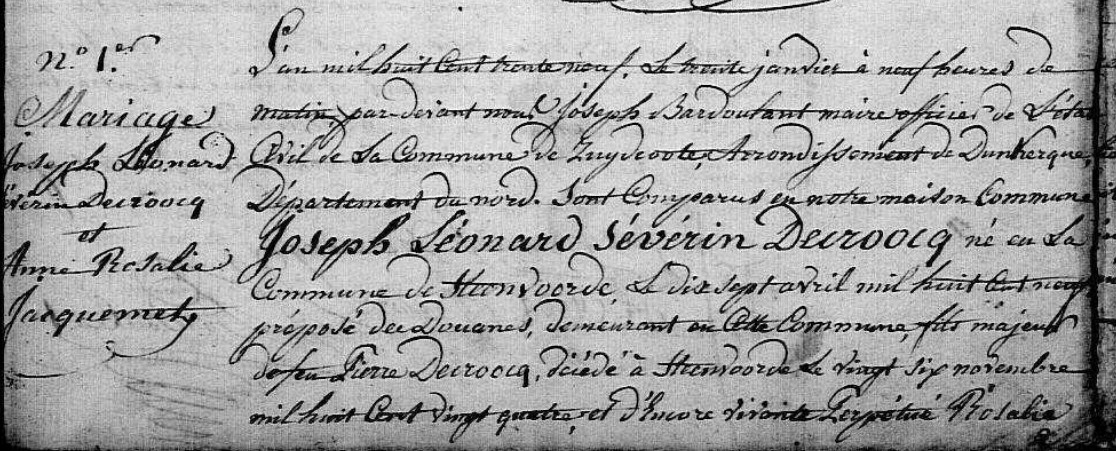 n.o 1.er
Mariage
Joseph Léonard
Sévérin Decroocq
et
Anne Rosalie
Jacquemet
L'an mil huit Cent trente neuf, Le trente janvier à neuf heures de
matin, par devant nous Joseph Bardoulant maire officier de L'état
Civil de La Commune de Zuydcoote, Arrondissement de Dunkerque,
Département du nord. Sont Comparus en notre maison Commune
Joseph Léonard Sévérin Decroocq né en La
Commune de Steenvoorde, Le dix sept avril mil huit Cent neuf
préposé des Douanes, demeurant en Cette Commune, fils majeur
de feu Pierre Decroocq, décédé à Steenvoorde Le vingt six novembre
mil huit Cent vingt quatre, et d'Encore vivante Perpétué Rosalie